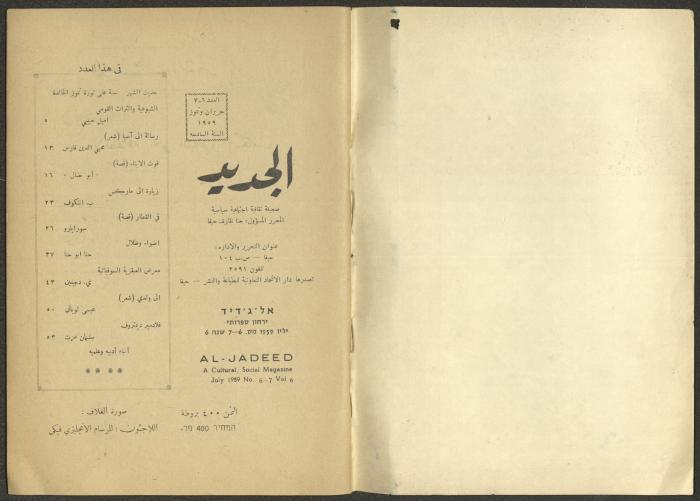 في هذا العدد
حديث الشهر سنة على ثورة تموز الخالدة
الشيوعية والتراث القومي
اميل حبيبي ٥
رسالة الى آسيا (شعر)
محيي الدين فارس ١٣
قوت الابناء (قصة)
١٦
زيارة الى ماركس
ب. ٢٣
في القطار (قصة)
٢٦
اضواء وظلال
حنا ابو حنا ٣٧
معرض العبقرية السوفياتية
ي. ٤٣
الى ولدي (شعر)
عيسى لوباني ٥٠
فلاديمير ديمتروف
سليمان عزت ٥٣
أنباء أدبية وعلمية
صورة الغلاف :
اللاجئون : للرسام الانجليزي
العدد ٦-٧
حزيران وتموز
١٩٥٩
السنة السادسة
الجديد
صحيفة ثقافية اجتماعية سياسية
المحرر المسؤول: حنا نقارة، حيفا
عنوان التحرير والادارة:
حيفا — ص.ب ١٠٤
تلفون ٣٥٩١
تصدرها دار الاتحاد التعاونية للطباعة والنشر — حيفا
אל-ג׳דיד
ירחון ספרותי
יולין 1959 מס. 6—7 שנה 6
AL-JADEED
A Cultural, Social Magazine
July 1959 No. 6-7 Vol 6
الثمن ٤٠٠ بروطة
המחיר 400 פר׳